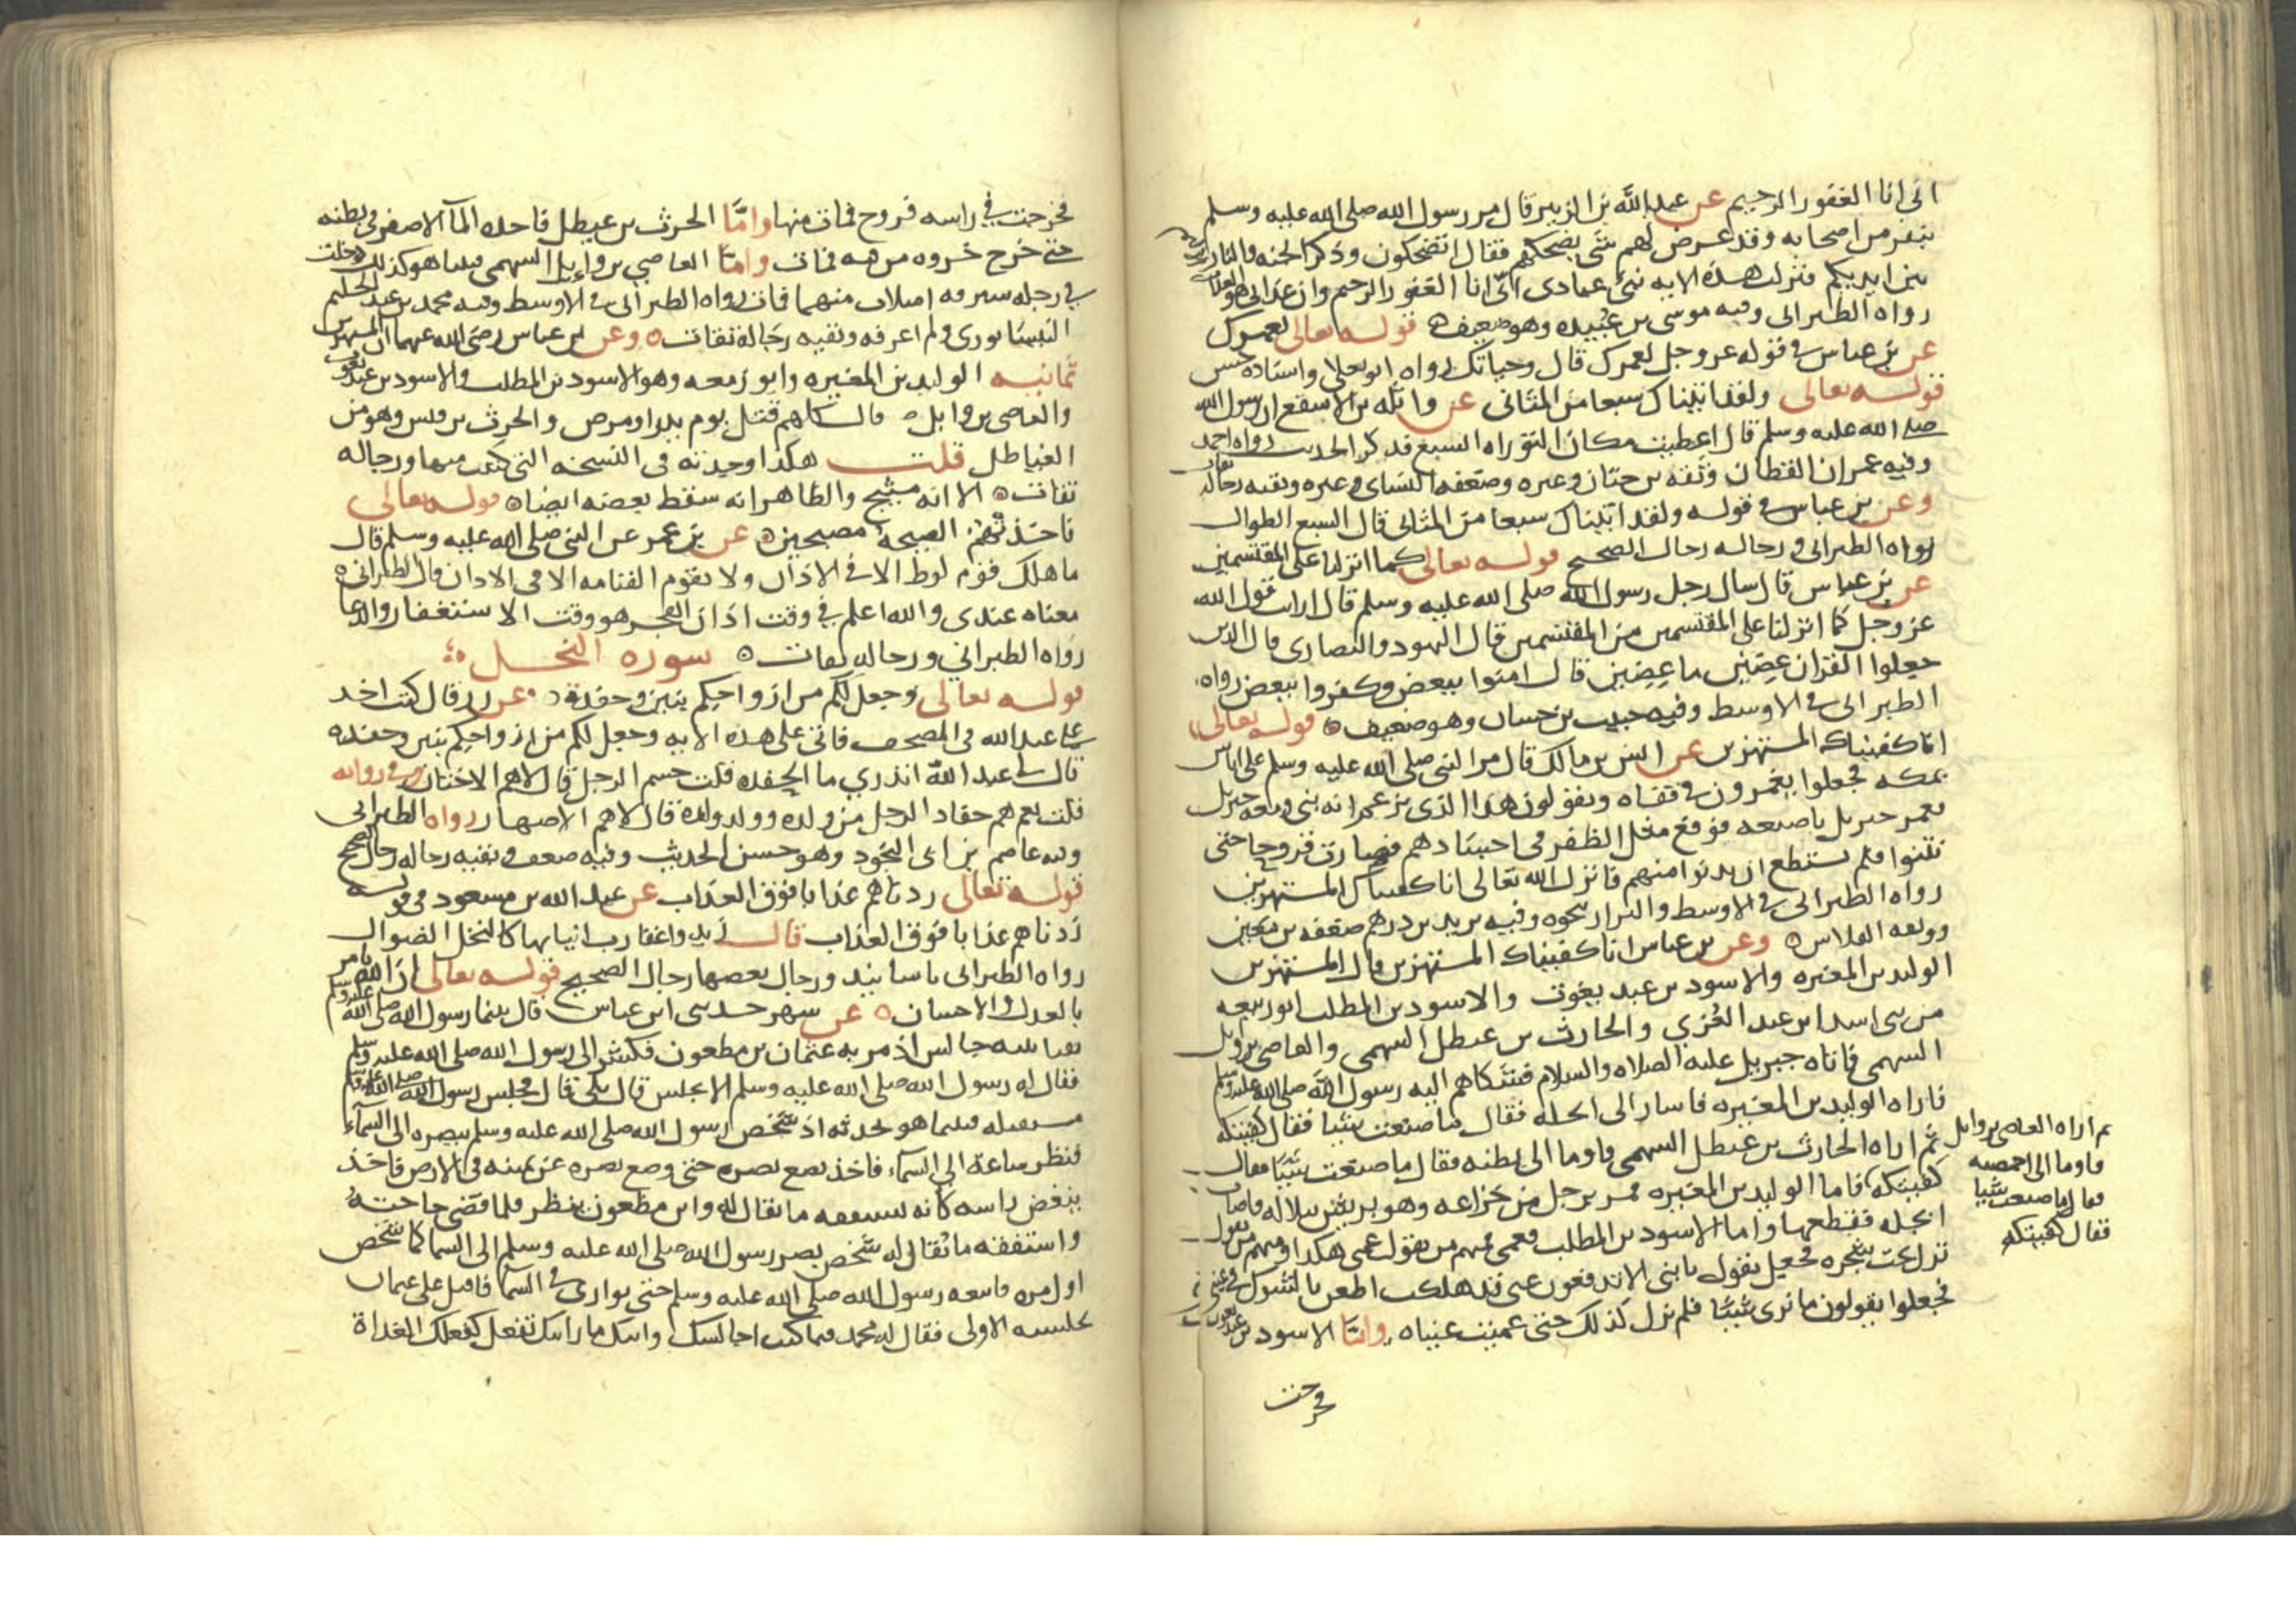 انى انا الغفور الرحيم عن عبد الله بن الزبير قال مر رسول الله صلى الله عليه وسلم
بنفر من اصحابه وقد عرض لهم شى يضحكهم فقال اتضحكون وذكر الجنه والنار
بين ايديكم فنزلت هذه الايه نبئ عبادى انى انا الغفور الرحيم وان عذابى هو العذاب
رواه الطبرانى وفيه موسى بن عبيده وهو ضعيف قوله تعالى لعمرك
عن بن عباس فى قوله عز وجل لعمرك قال وحياتك رواه ابو يعلى واسناده حسن
قوله تعالى ولقد اتيناك سبعا من المثانى عن واثله بن الاسقع ان رسول الله
صلى الله عليه وسلم قال اعطيت مكان التوراه السبع فذكر الحديث رواه احمد
وفيه عمران القطان وثقه بن حبان وغيره وضعفه النساى وغيره وبقيه رجاله ثقات
وعن بن عباس فى قوله ولقد اتيناك سبعا من المثانى قال السبع الطوال
رواه الطبرانى ورجاله رجال الصحيح قوله تعالى كما انزلنا على المقتسمين
عن بن عباس قال سال رجل رسول الله صلى الله عليه وسلم قال ارايت قول الله
عز وجل كما انزلنا على المقتسمين من المقتسمين قال اليهود والنصارى قال الذين
جعلوا القران عضين ما عضين قال امنوا ببعض وكفروا ببعض رواه
الطبرانى فى الاوسط وفيه حبيب بن حسان وهو ضعيف قوله تعالى
انا كفيناك المستهزين عن انس بن مالك قال مر النبى صلى الله عليه وسلم على اناس
بمكه فجعلوا يغمزون فى قفاه ويقولون هذا الذى يزعم انه نبى ومعه جبريل
فغمز جبريل باصبعه فوقع مثل الظفر فى اجسادهم فصارت قروحا حتى
نتنوا فلم يستطع ان يدنوا منهم فانزل الله تعالى انا كفيناك المستهزين
رواه الطبرانى فى الاوسط والبزار بنحوه وفيه يزيد بن درهم ضعفه بن معين
ووثقه الفلاس وعن بن عباس انا كفيناك المستهزين قال المستهزين
الوليد بن المغيره والاسود بن عبد يغوث والاسود بن المطلب ابو زمعه
من بنى اسد ابن عبد العزي والحارث بن عيطل السهمى والعاصى بن وايل
السهمى فاتاه جبريل عليه الصلاه والسلام فشكاهم اليه رسول الله صلى الله عليه وسلم
فاراه الوليد بن المغيره فاشار الى ابجله فقال ما صنعت شيئا فقال كفيتكه
ثم اراه الحارث بن عيطل السهمى فاوما الى بطنه فقال ما صنعت شيئا فقال
كفيتكه فاما الوليد بن المغيره فمر برجل من خزاعه وهو يريش نبلا له فاصاب
ابجله فقطعها واما الاسود بن المطلب فعمى فمنهم من يقول عمى هكذا ومنهم من يقول
نزل تحت شجره فجعل يقول يا بنى الا تدفعون عنى قد هلكت اطعن بالشوك فى عينى
فجعلوا يقولون ما نرى شيئا فلم يزل كذلك حتى عميت عيناه واما الاسود بن عبد يغوث
ثم اراه العاصى بن وايل
فاوما الى اخمصه
فقال ما صنعت شيئا
فقال كفيتكه
فخرجت
فخرجت فى راسه قروح فمات منها واما الحرث بن عيطل فاخذه المآ الاصفر فى بطنه
حتى خرج خروه من فيه فمات واما العاصي بن وايل السهمى فبينما هو كذلك دخلت
فى رجله شبرقه امتلات منها فمات رواه الطبرانى فى الاوسط وفيه محمد بن عبد الحليم
النيسابورى ولم اعرفه وبقيه رجاله ثقات وعن بن عباس رضى الله عنهما ان المستهزين
ثمانيه الوليد بن المغيره وابو زمعه وهو الاسود بن المطلب والاسود بن عبد يغوث
والعاصى بن وايل قال كلهم قتل يوم بدر او مرض والحرث بن قيس وهو من
الغياطل قلت هكذا وجدته فى النسخه التى كتبت منها ورجاله
ثقات الا انه مشبج والظاهر انه سقط بعضه ايضا قوله تعالى
فاخذتهم الصيحة مصبحين عن بن عمر عن النبى صلى الله عليه وسلم قال
ما هلك قوم لوط الا فى الاذان ولا تقوم القيامه الا فى الاذان قال الطبرانى
معناه عندى والله اعلم فى وقت اذان الفجر هو وقت الاستغفار والدعا
رواه الطبراني ورجاله ثقات سوره النحل
قوله تعالى وجعل لكم من ازواجكم بنين وحفدة عن زر قال كنت اخذ
على عبد الله فى المصحف فاتى على هذه الايه وجعل لكم من ازواجكم بنين وحفده
قال لى عبد الله اتدري ما الحفده قلت حشم الرجل قال لا هم الاختان وفى روايه
قلت نعم هم حفاد الرجل من ولده وولد ولده قال لا هم الاصهار رواه الطبرانى
وفيه عاصم بن ابى النجود وهو حسن الحديث وفيه ضعف وبقيه رجاله رجال الصحيح
قوله تعالى زدناهم عذابا فوق العذاب عن عبد الله بن مسعود فى قوله
زدناهم عذابا فوق العذاب قال زيدوا عقارب انيابها كالنخل الطوال
رواه الطبرانى باسانيد ورجال بعضها رجال الصحيح قوله تعالى ان الله يامر
بالعدل والاحسان عن شهر حدثنى ابن عباس قال بينما رسول الله صلى الله عليه وسلم
بفنا بيته جالس اذ مر به عثمان بن مظعون فكشر الى رسول الله صلى الله عليه وسلم
فقال له رسول الله صلى الله عليه وسلم الا تجلس قال بلى قال فجلس رسول الله صلى الله عليه وسلم
مستقبله فبينما هو يحدثه اذ شخص رسول الله صلى الله عليه وسلم ببصره الى السماء
فنظر ساعة الى السماء فاخذ يضع بصره حتى وضع بصره عن يمينه فى الارض فاخذ
ينغض راسه كانه يستفقه ما يقال له وابن مظعون ينظر فلما قضى حاجته
واستفقه ما يقال له شخص بصر رسول الله صلى الله عليه وسلم الى السما كما شخص
اول مره فاتبعه رسول الله صلى الله عليه وسلم حتى توارى فى السما فاقبل على عثمان
بجلسته الاولى فقال له محمد فيما كنت اجالسك واتيك ما رايتك تفعل كفعلك الغداة